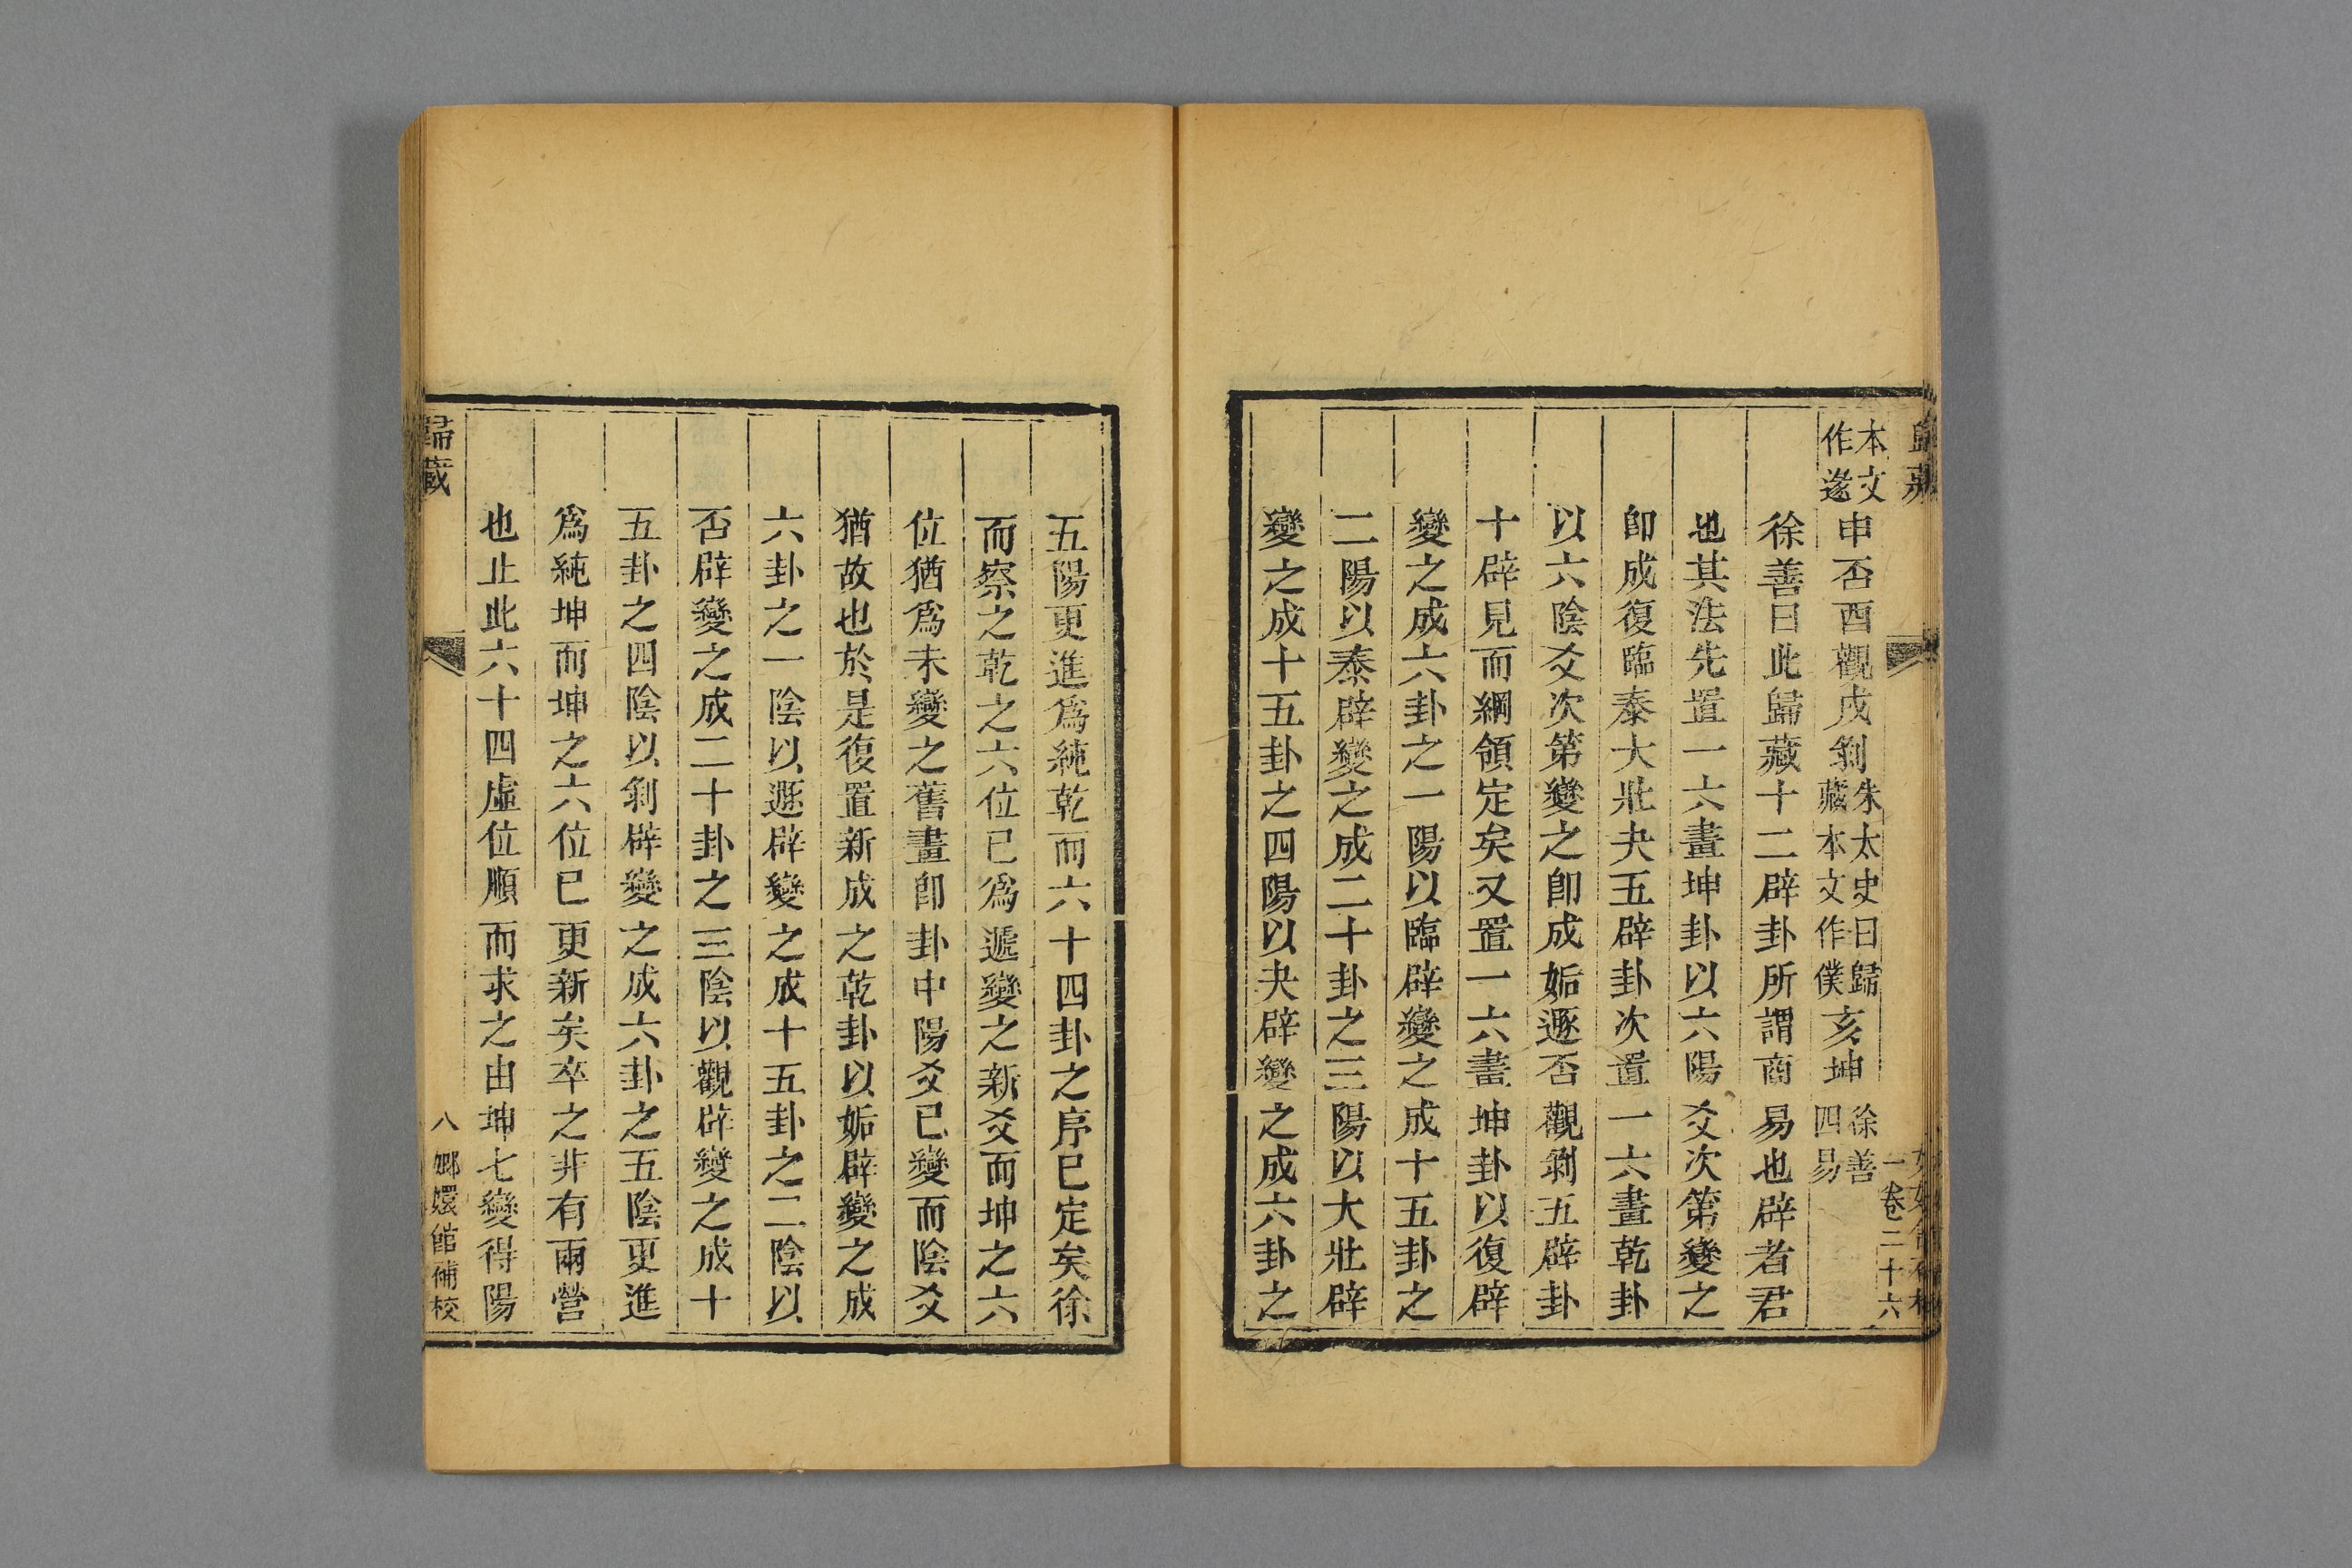 本文作遂申否酉觀戌剝朱太史曰歸藏本文作僕亥坤徐善四易
徐善曰此歸藏十二辟卦所謂商易也辟者君
也其法先置一六畫坤卦以六陽爻次第變之
卽成復臨泰大壯夬五辟卦次置一六畫乾卦
以六陰爻次第變之卽成姤遯否觀剝五辟卦
十辟見而綱領定矣又置一六畫坤卦以復辟
變之成六卦之一陽以臨辟變之成十五卦之
二陽以泰辟變之成二十卦之三陽以大壯辟
變之成十五卦之四陽以夬辟變之成六卦之
五陽更進爲純乾而六十四卦之序已定矣徐
而察之乾之六位已爲遞變之新爻而坤之六
位猶爲未變之舊畫卽卦中陽爻已變而陰爻
猶故也於是復置新成之乾卦以姤辟變之成
六卦之一陰以遯辟變之成十五卦之二陰以
否辟變之成二十卦之三陰以觀辟變之成十
五卦之四陰以剝辟變之成六卦之五陰更進
爲純坤而坤之六位已更新矣卒之非有兩營
也止此六十四虛位順而求之由坤七變得陽
歸藏
八 嫏嬛館補校
卷二十六